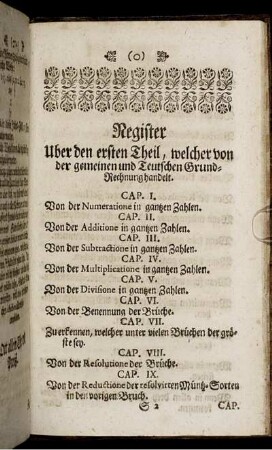 (o)
Register
Uber den ersten Theil, welcher von
der gemeinen und Teutschen Grund-
Rechnung handelt.
CAP. I.
Von der Numeratione in gantzen Zahlen.
CAP. II.
Von der Additione in gantzen Zahlen.
CAP. III.
Von der Subtractione in gantzen Zahlen.
CAP. IV.
Von der Multiplicatione in gantzen Zahlen.
CAP. V.
Von der Divisione in gantzen Zahlen.
CAP. VI.
Von der Benennung der Brüche.
CAP. VII.
Zu erkennen, welcher unter vielen Brüchen der grö-
ste sey.
CAP. VIII.
Von der Resolutione der Brüche.
CAP. IX.
Von der Reductione der resolvirten Müntz-Sorten
in den vorigen Bruch.
S 2 CAP.